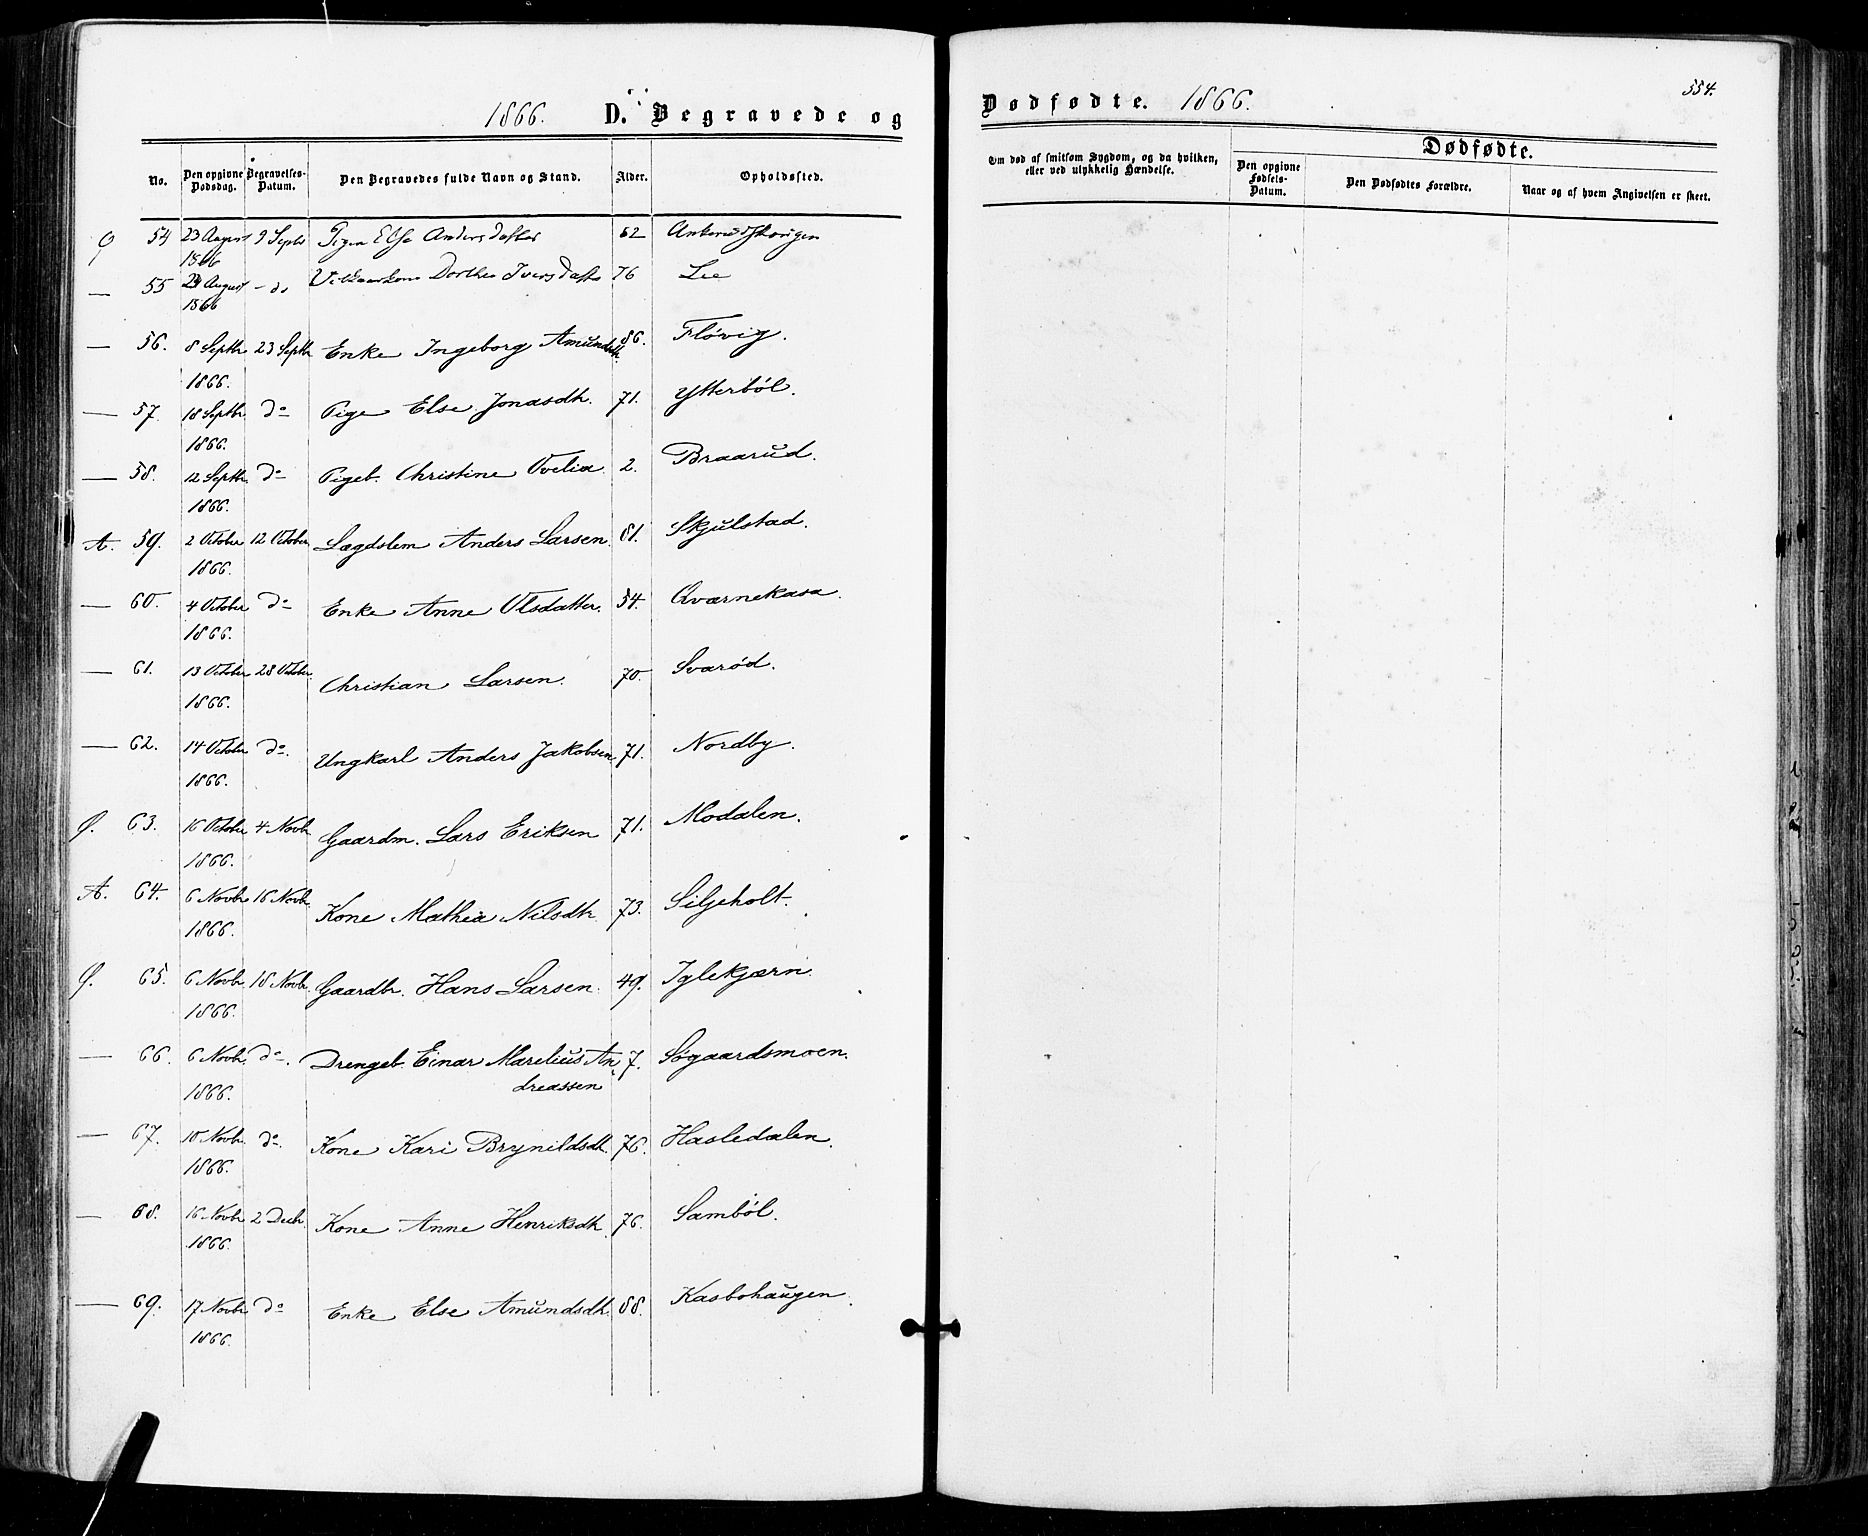 1866. D. Begravede og
Dødfødte. 1866.
554.
No.
Den opgivne Dødsdag.
Begravelses-Datum.
Den Begravedes fulde Navn og Stand.
Alder.
Opholdssted.
Om død af smitsom Sygdom, og da hvilken, eller ved ulykkelig Hændelse.
Dødfødte.
Den opgivne Fødsels-Datum.
Den Dødfødtes Forældre.
Naar og af hvem Angivelsen er skeet.
Ø 54 23 August 9 Septb Pigen Else Andersdatter 62
1866
— 55 29 August – do Dorthea Iversdatter 76 Lee
1866
— 56. 8 Septbr 23 Septbr Enke Ingeborg Amundsdtr. 86. Fløvig.
1866.
— 57. 18 Septbr. do Pige Else Jonasdtr. 71. Ytterböl.
1866.
— 58. 12 Septbr. do Pigeb. Christine Ovelia 2. Braarud.
1866.
A. 59. 2 October 12 October Lægdslem Anders Larsen. 81. Skjulstad.
1866.
— 60. 4 October do Enke Anne Olsdatter. 54. Qværnekasa.
1866.
— 61. 13 October 28 October. Christian Larsen. 70. Svarød.
1866.
— 62. 14 October do. Ungkarl Anders Jakobsen 71. Nordby.
1866.
Ø. 63. 16 October 4 Novbr Gaardm. Lars Eriksen 71. Modalen.
1866.
A. 64. 6 Novbr. 16 Novbr. Kone Mathea Nilsdtr. 73. Siljeholt.
1866.
Ø. 65. 6 Novbr. 18 Novbr. Gaardbr. Hans Larsen. 49. Iglekjærn.
1866.
— 66. 6 Novbr. do. Drengeb. Einar Marelius An 7. Søgaardsmoen.
dreassen
1866.
— 67. 10 Novbr. do. Kone Kari Brynildsdtr. 76. Hasledalen.
1866.
— 68. 16 Novbr 2 Decbr. Kone Anne Henriksdtr. 76. Samböl.
1866.
— 69. 17 Novbr do Enke Else Amundsdtr. 88. Kasbohaugen.
1866.